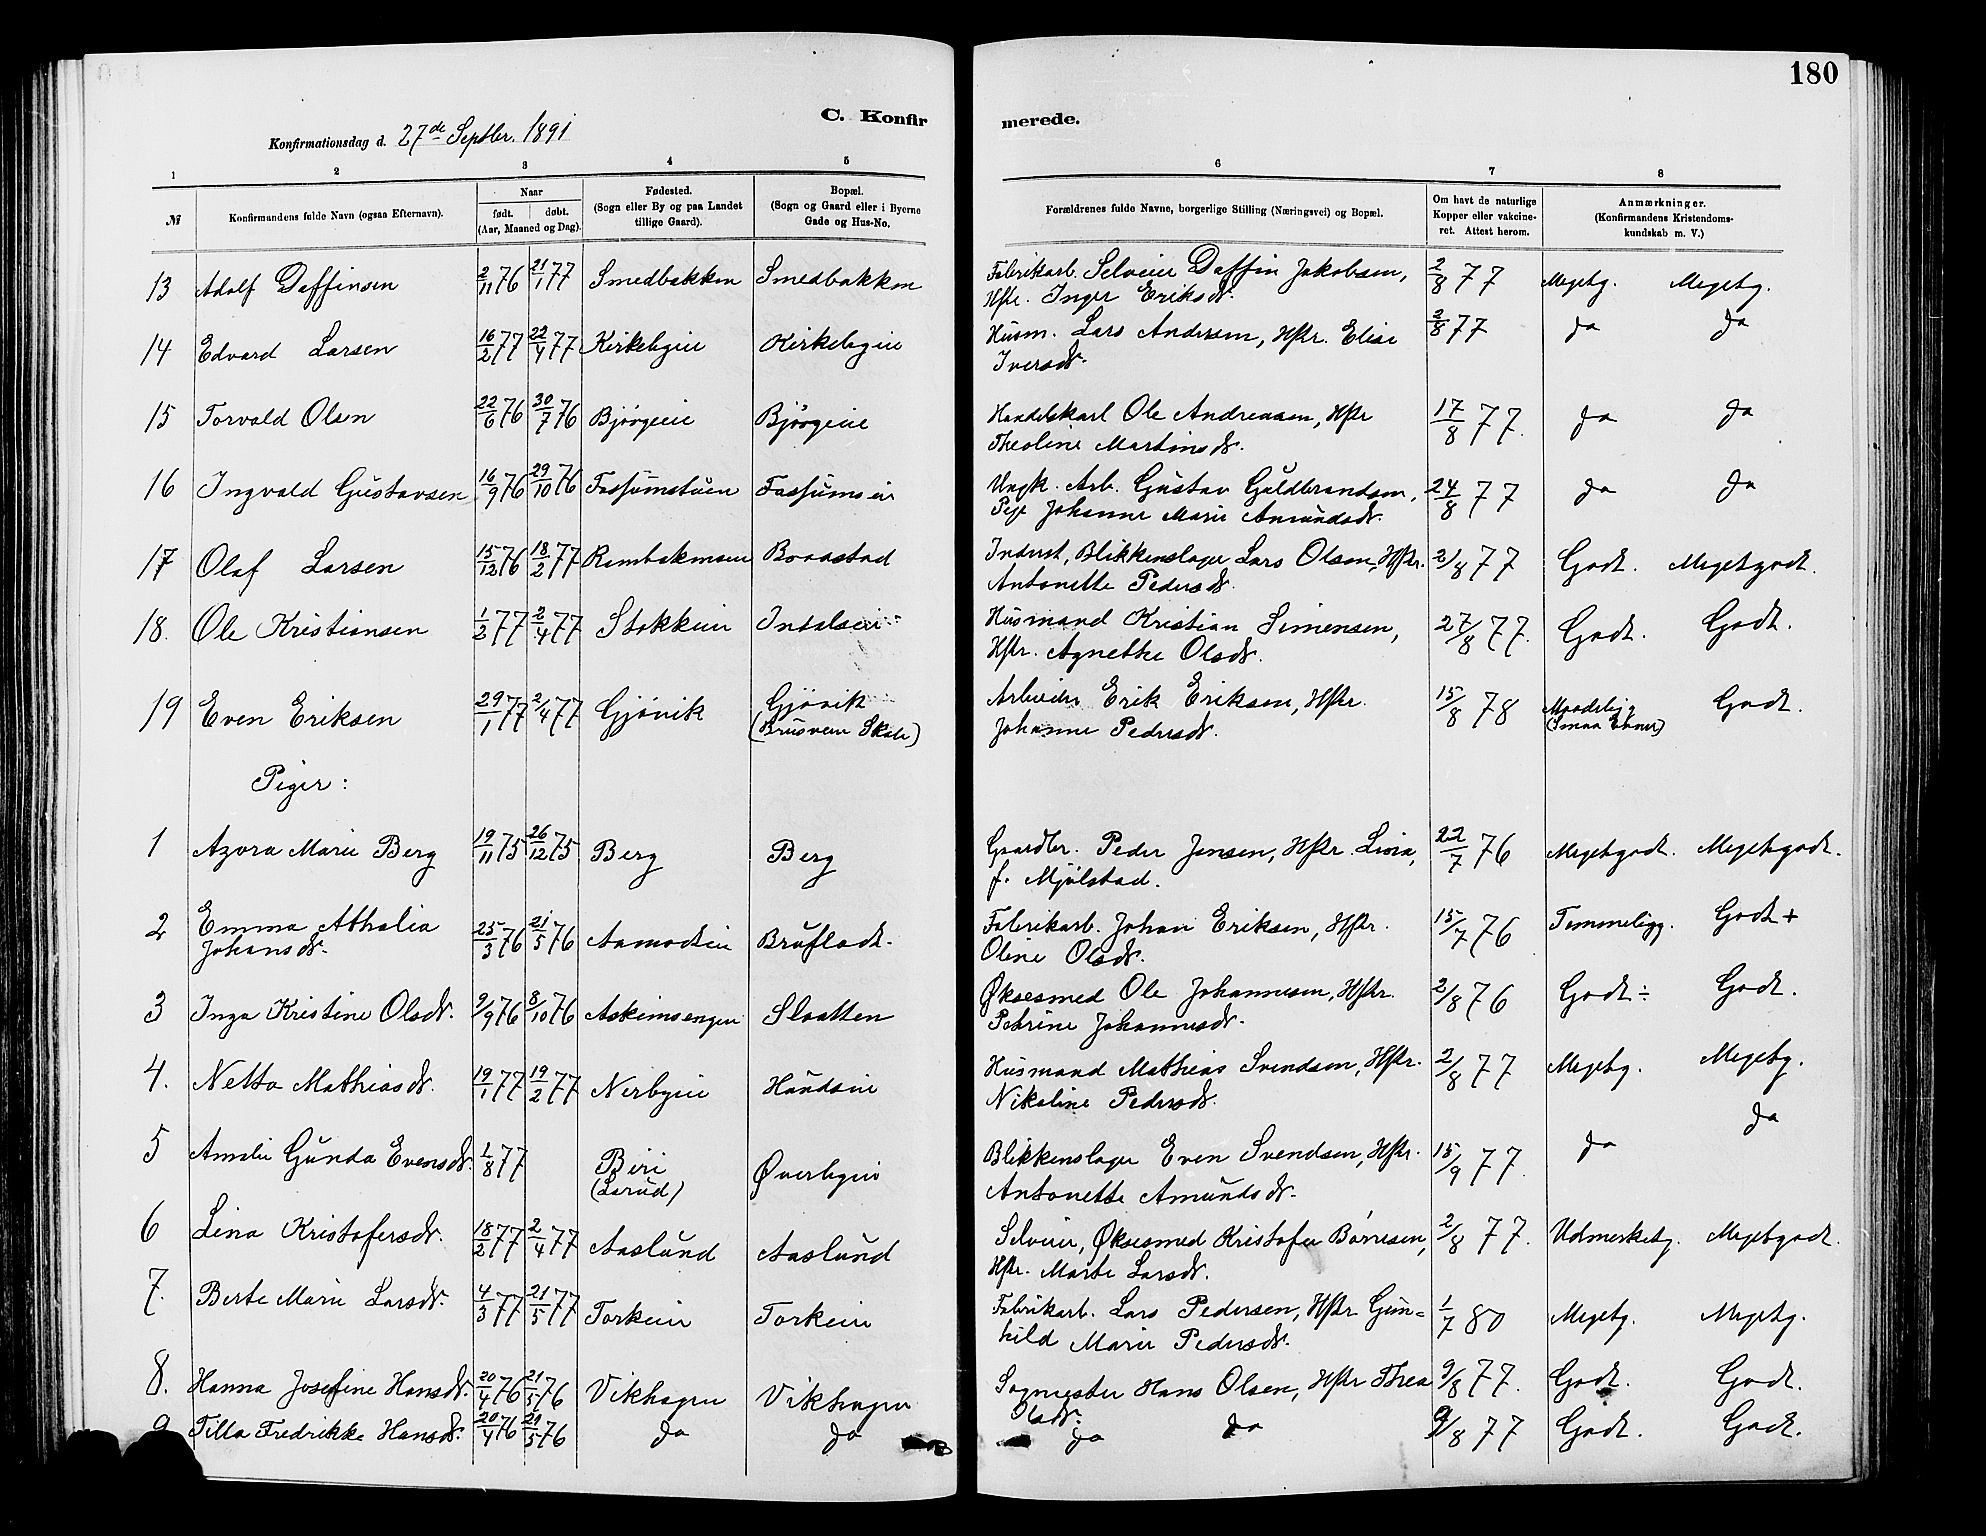 180
C. Konfirmerede.
Konfirmationsdag d. 27de Septbr. 1891
1 2 3 4 5 6 7 8
№
Konfirmandens fulde Navn (ogsaa Efternavn).
Naar
født. døbt.
(Aar, Maaned og Dag).
Fødested.
(Sogn eller By og paa Landet
tillige Gaard).
Bopæl.
(Sogn og Gaard eller i Byerne
Gade og Hus-No.
Forældrenes fulde Navne, borgerlige Stilling (Næringsvei) og Bopæl.
Om havt de naturlige
Kopper eller vakcine-
ret. Attest herom.
Anmærkninger.
(Konfirmandens Kristendoms-
kundskab m. V.)
13 Adolf Daffinsen 2/11 76 21/1 77 Smedbakken Smedbakken Fabrikarb. Selveier Daffin Jakobsen, 2/8 77 Megetg. Megetg.
Hstr. Inger Eriksdr.
14 Edvard Larsen 16/2 77 22/4 77 Kirkebyeie Kirkebyeie Husm. Lars Andersen, Hstr. Elise 2/8 77 do do
Iversdr.
15 Torvald Olsen 22/6 76 30/7 76 Bjørgeeie Bjørgeeie Handelskarl Ole Andreassen, Hstr 17/8 77. do do
Theoline Martinsdr.
16 Ingvald Gustavsen 16/9 76 29/10 76 Fossumstuen Fossumseie Ungk. Arb. Gustav Guldbrandsen, 24/8 77 do do
Pige Johanne Marie Amundsdr.
17 Olaf Larsen 15/12 76 18/2 77 Rambekmoen Braastad Inderst, Blikkenslager Lars Olsen, Hstr. 2/8 77 Godt. Megetgodt.
Antonette Pedersdr.
18. Ole Kristiansen 1/2 77 2/4 77 Stokkeeie Husmand Kristian Simensen, 27/8 77. Godt. Godt.
Hstr. Agnethe Olsdr.
19 Even Eriksen 29/1 77 2/4 77 Gjøvik Gjøvik Arbeider Erik Eriksen, Hstr. 15/8 78 Maadelig Godt.
(Brusveen Skole) Johanne Pedersdr. (Smaa Evner)
Piger:
1 Azora Marie Berg 19/11 75 26/12 75 Berg Berg Gaardbr. Peder Jensen, Hstr. Livia, 22/7 76 Megetgodt. Megetgodt.
f. Mjølstad.
2 Emma Athalia 25/3 76 21/5 76 Aamodteie Brufladt. Fabrikarb. Johan Eriksen, Hstr. 15/7 76 Temmeligg. Godt+
Johansdr. Oline Olsdr.
3 Inga Kristine Olsdr. 2/9 76 8/10 76 Askimsengen Slaatten Øksesmed Ole Johannesen, Hstr. 2/8 76 Godt÷ Godt.
Petrine Johannesdr.
4. Netta Mathiasdr. 19/1 77 19/2 77 Nerbyeie Hundseie Husmand Mathias Svendsen, Hstr. 2/8 77 Megetg. Megetg.
Nikoline Pedersdr.
5 Amalie Gunda Evensdr. 1/8 77 Biri Øverbyeie Blikkenslager Even Svendsen, Hstr. 15/9 77. do do
(Lerud) Antonette Amundsdr.
6 Lina Kristofersdr. 18/2 77 2/4 77 Aaslund Aaslund Selveier, Øksesmed Kristofer Børresen, 2/8 77. Udmerketg. Megetgodt.
Hstr. Marte Larsdr.
7. Berte Marie Larsdr. 4/3 77 21/5 77 Torkeeie Torkeeie Fabrikarb. Lars Pedersen, Hstr Gun=1/7 80 Megetg. Megetg.
hild Marie Pedersdr.
8. Hanna Josefine Hansdr. 20/4 76 21/5 76 Vikhagen Vikhagen Sagmester Hans Olsen, Hstr Thea 9/8 77. Godt. Godt.
Olsdr.
9 Tilla Fredrikke Hansdr. 20/4 76 21/5 76 do do do do 9/8 77 Godt. Godt.